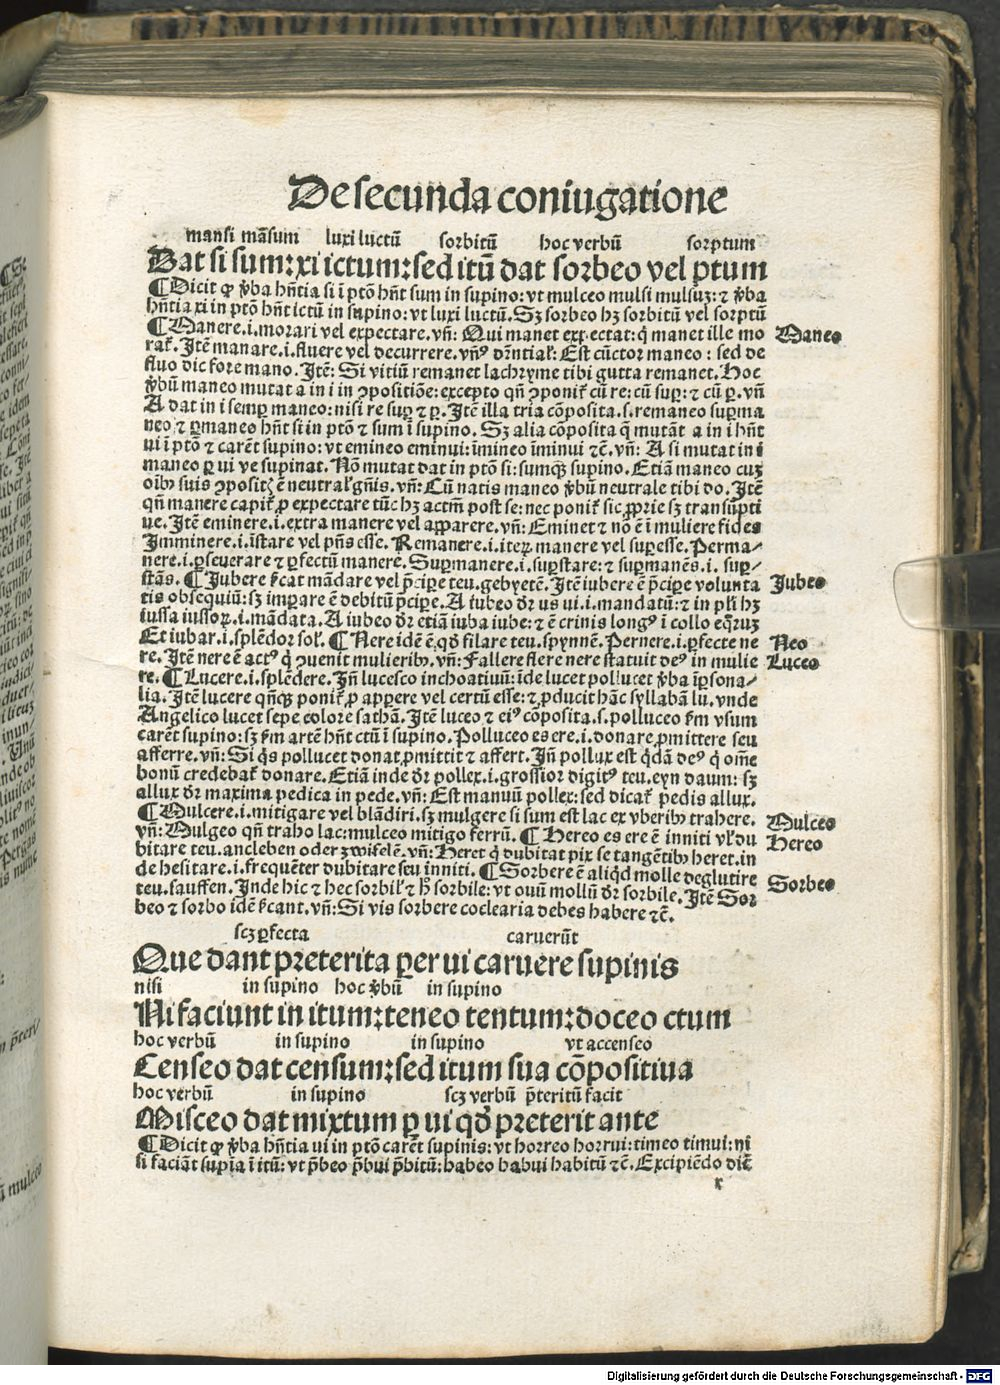 De secunda coniugatione
mansi māsum luxi luctū sorbitū hoc verbū sorptum
Dat si sum: xi ictum: sed itū dat sorbeo vel ptum
¶ Dicit ꝙ v̾ba hn̄tia si ī p̄tō hn̄t sum in supino: vt mulceo mulsi mulsuꝫ: ⁊ v̾ba
hn̄tia xi in ptō hn̄t ictū in supino: vt luxi luctū. Sꝫ sorbeo hꝫ sorbitū vel sorptū
¶ Manere .i. morari vel expectare. vn̄: Qui manet expectat: q̇ manet ille mo
Maneo
rat᷑. Itē manare .i. fluere vel decurrere. vn̄ꝰ dr̄ntial᷑: Est cūctor maneo: sed de
fluo dic fore mano. Itē: Si vitiū remanet lachryme tibi gutta remanet. Hoc
v̾bū maneo mutat a in i in ꝯpositiōe: excepto qn̄ ꝯponit᷑ cū re: cū suꝑ: ⁊ cū ꝑ. vn̄
A dat in i semꝑ maneo: nisi re suꝑ ⁊ ꝑ. Itē illa tria cōposita .s. remaneo suꝑma
neo ⁊ ꝑmaneo hn̄t si in ptō ⁊ sum ī supino. Sꝫ alia cōposita q̄ mutāt a in i hn̄t
ui ī ptō ⁊ carēt supino: vt emineo eminui: īmineo īminui ⁊c̄. vn̄: A si mutat in i
maneo ꝑ ui ve supinat. Nō mutat dat in ptō si: sumqꝫ supino. Etiā maneo cuꝫ
oībꝰ suis ꝯpositꝭ ē neutral᷑ gn̄is. vn̄: Cū natis maneo v̾bū neutrale tibi do. Itē
qn̄ manere capit᷑ ꝓ expectare tūc hꝫ actm̄ post se: nec ponit᷑ sic ꝓprie sꝫ transūpti
ue. Itē eminere .i. extra manere vel apparere. vn̄: Eminet ⁊ nō ē ī muliere fides
Imminere .i. īstare vel pn̄s esse. Remanere .i. iteꝝ manere vel suꝑesse. Perma⸗
nere .i. ꝑseuerare ⁊ ꝑfectū manere. Suꝑmanere .i. suꝑstare: ⁊ suꝑmanēs .i. suꝑ⸗
stās. ¶ Jubere sīcat mādare vel p̄cipe teu. gebyetē. Itē iubere ē p̄cipe volunta
Jubeo
tis obsequiū: sꝫ imꝑare ē debitū p̄cipe. A iubeo dr̄ us ui .i. mandatū: ⁊ in pl᷑i hꝫ
iussa iussoꝝ .i. mādata. A iubeo dr̄ etiā iuba iube: ⁊ ē crinis longꝰ ī collo eqꝛuꝫ
Et iubar .i. splēdor sol᷑. ¶ Nere idē ē qd̄ filare teu. spynnē. Pernere .i. ꝑfecte ne
Neo
re. Itē nere ē actꝰ q̇ ꝯuenit mulieribꝰ. vn̄: Fallere flere nere statuit deꝰ in mulie
Luceo
re. ¶ Lucere .i. splēdere. Jn̄ lucesco inchoatiuū: īde lucet pollucet v̾ba īpsona⸗
lia. Itē lucere qn̄qꝫ ponit᷑ ꝓ appere vel certū esse: ⁊ ꝓducit hāc syllabā lu. vnde
Angelico lucet sepe colore sathā. Itē luceo ⁊ eiꝰ cōposita .s. polluceo fm̄ vsum
carēt supino: sꝫ fm̄ artē hn̄t ctū ī supino. Polluceo es ere .i. donare ꝓmittere seu
afferre. vn̄: Si q̇s pollucet donat ꝓmittit ⁊ affert. Jn̄ pollux est q̇dā deꝰ q̇ om̄e
bonū credebat᷑ donare. Etiā inde dr̄ pollex .i. grossior digitꝰ teu. eyn daum: sꝫ
allux dr̄ maxima pedica in pede. vn̄: Est manuū pollex: sed dicat᷑ pedis allux.
¶ Mulcere .i. mitigare vel blādiri. sꝫ mulgere si sum est lac ex vberibꝰ trahere.
Mulceo
vn̄: Mulgeo qn̄ traho lac: mulceo mitigo ferrū. ¶ Hereo es ere ē inniti vl᷑ du
Hereo
bitare teu. ancleben oder zwifelē. vn̄: Heret q̇ dubitat pix se tangētibꝰ heret. in
de hesitare .i. frequēter dubitare seu inniti. ¶ Sorbere ē aliqd̄ molle deglutire
Sorbeo
teu. sauffen. Inde hic ⁊ hec sorbil᷑ ⁊ h̄ sorbile: vt ouū mollū dr̄ sorbile. Itē Sor
beo ⁊ sorbo idē sīcant. vn̄: Si vis sorbere coclearia debes habere ⁊c̄.
scꝫ ꝑfecta caruerūt
Que dant preterita per ui caruere supinis
nisi in supino hoc v̾bū in supino
Ni faciunt in itum: teneo tentum: doceo ctum
hoc verbū in supino in supino vt accenseo
Censeo dat censum: sed itum sua cōpositiua
hoc verbū in supino scꝫ verbū p̄teritū facit
Misceo dat mixtum ꝑ ui qd̄ preterit ante
¶ Dicit ꝙ v̾ba hn̄tia ui in ptō carēt supinis: vt horreo horrui: timeo timui: ni
si faciāt supīa ī itū: vt p̄beo p̄bui p̄bitū: habeo habui habitū ⁊c̄. Excipiēdo dic̄
x
Digitalisierung gefördert durch die Deutsche Forschungsgemeinschaft - DFG